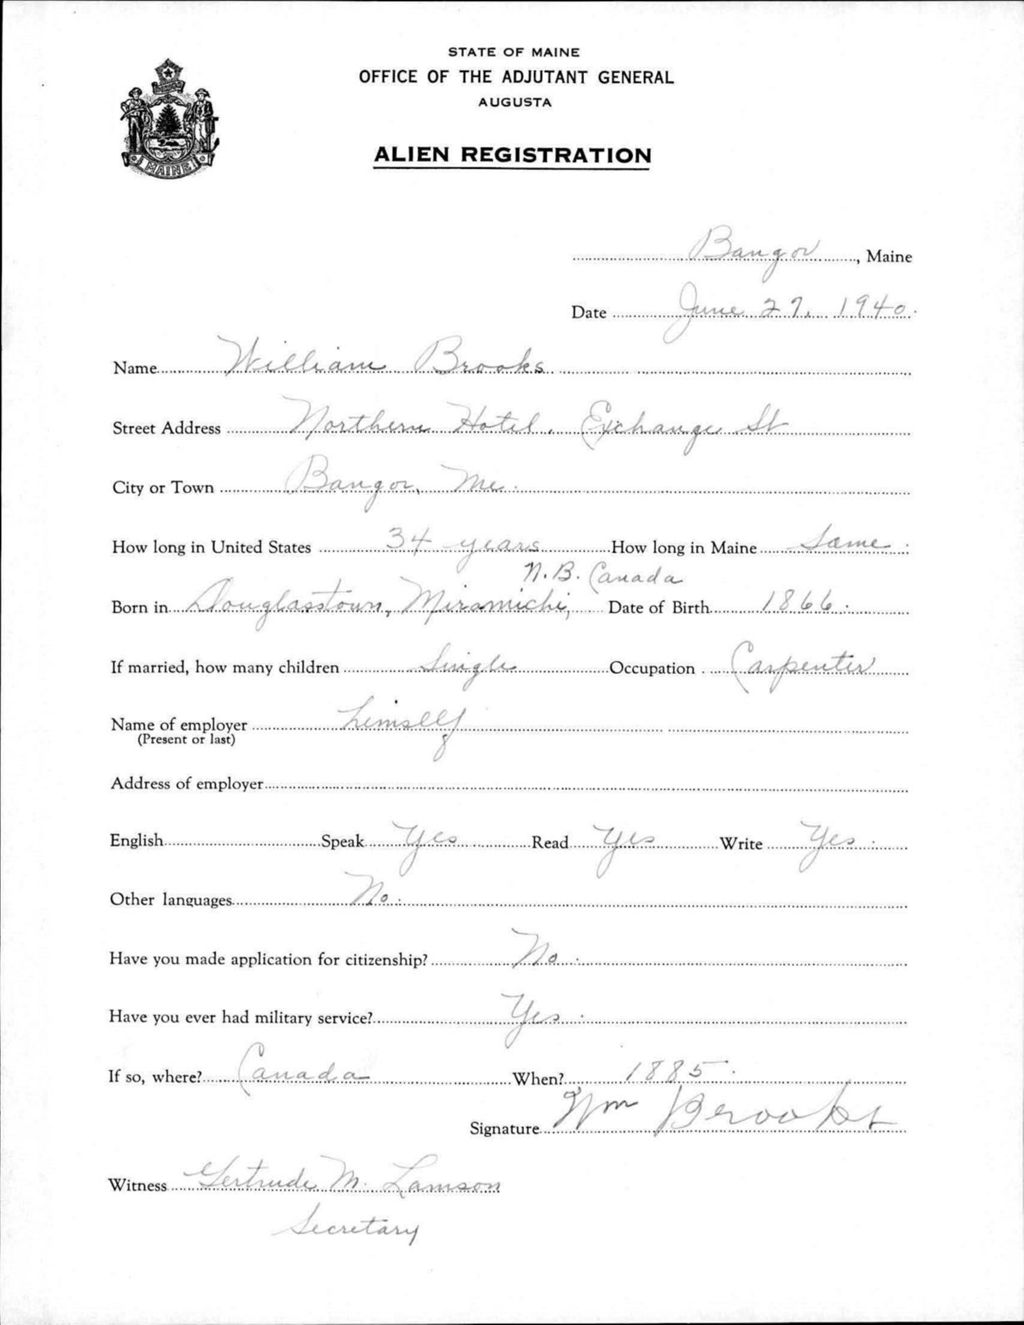 STATE OF MAINE
OFFICE OF THE ADJUTANT GENERAL
AUGUSTA
ALIEN REGISTRATION
MAINE
Bangor, Maine
Date June 27, 1940.
Name William Brooks
Street Address Northern Hotel. Exchange St
City or Town Bangor, Me.
How long in United States 34 years How long in Maine Same.
N.B. Canada
Born in Douglasstown, Miramichi, Date of Birth 1866.
If married, how many children Single Occupation Carpenter
Name of employer himself
(Present or last)
Address of employer
English Speak Yes Read Yes Write Yes.
Other languages No.
Have you made application for citizenship? No.
Have you ever had military service? Yes.
If so, where? Canada When? 1885.
Signature Wm Brooks
Witness Gertrude M. Lamson
Secretary